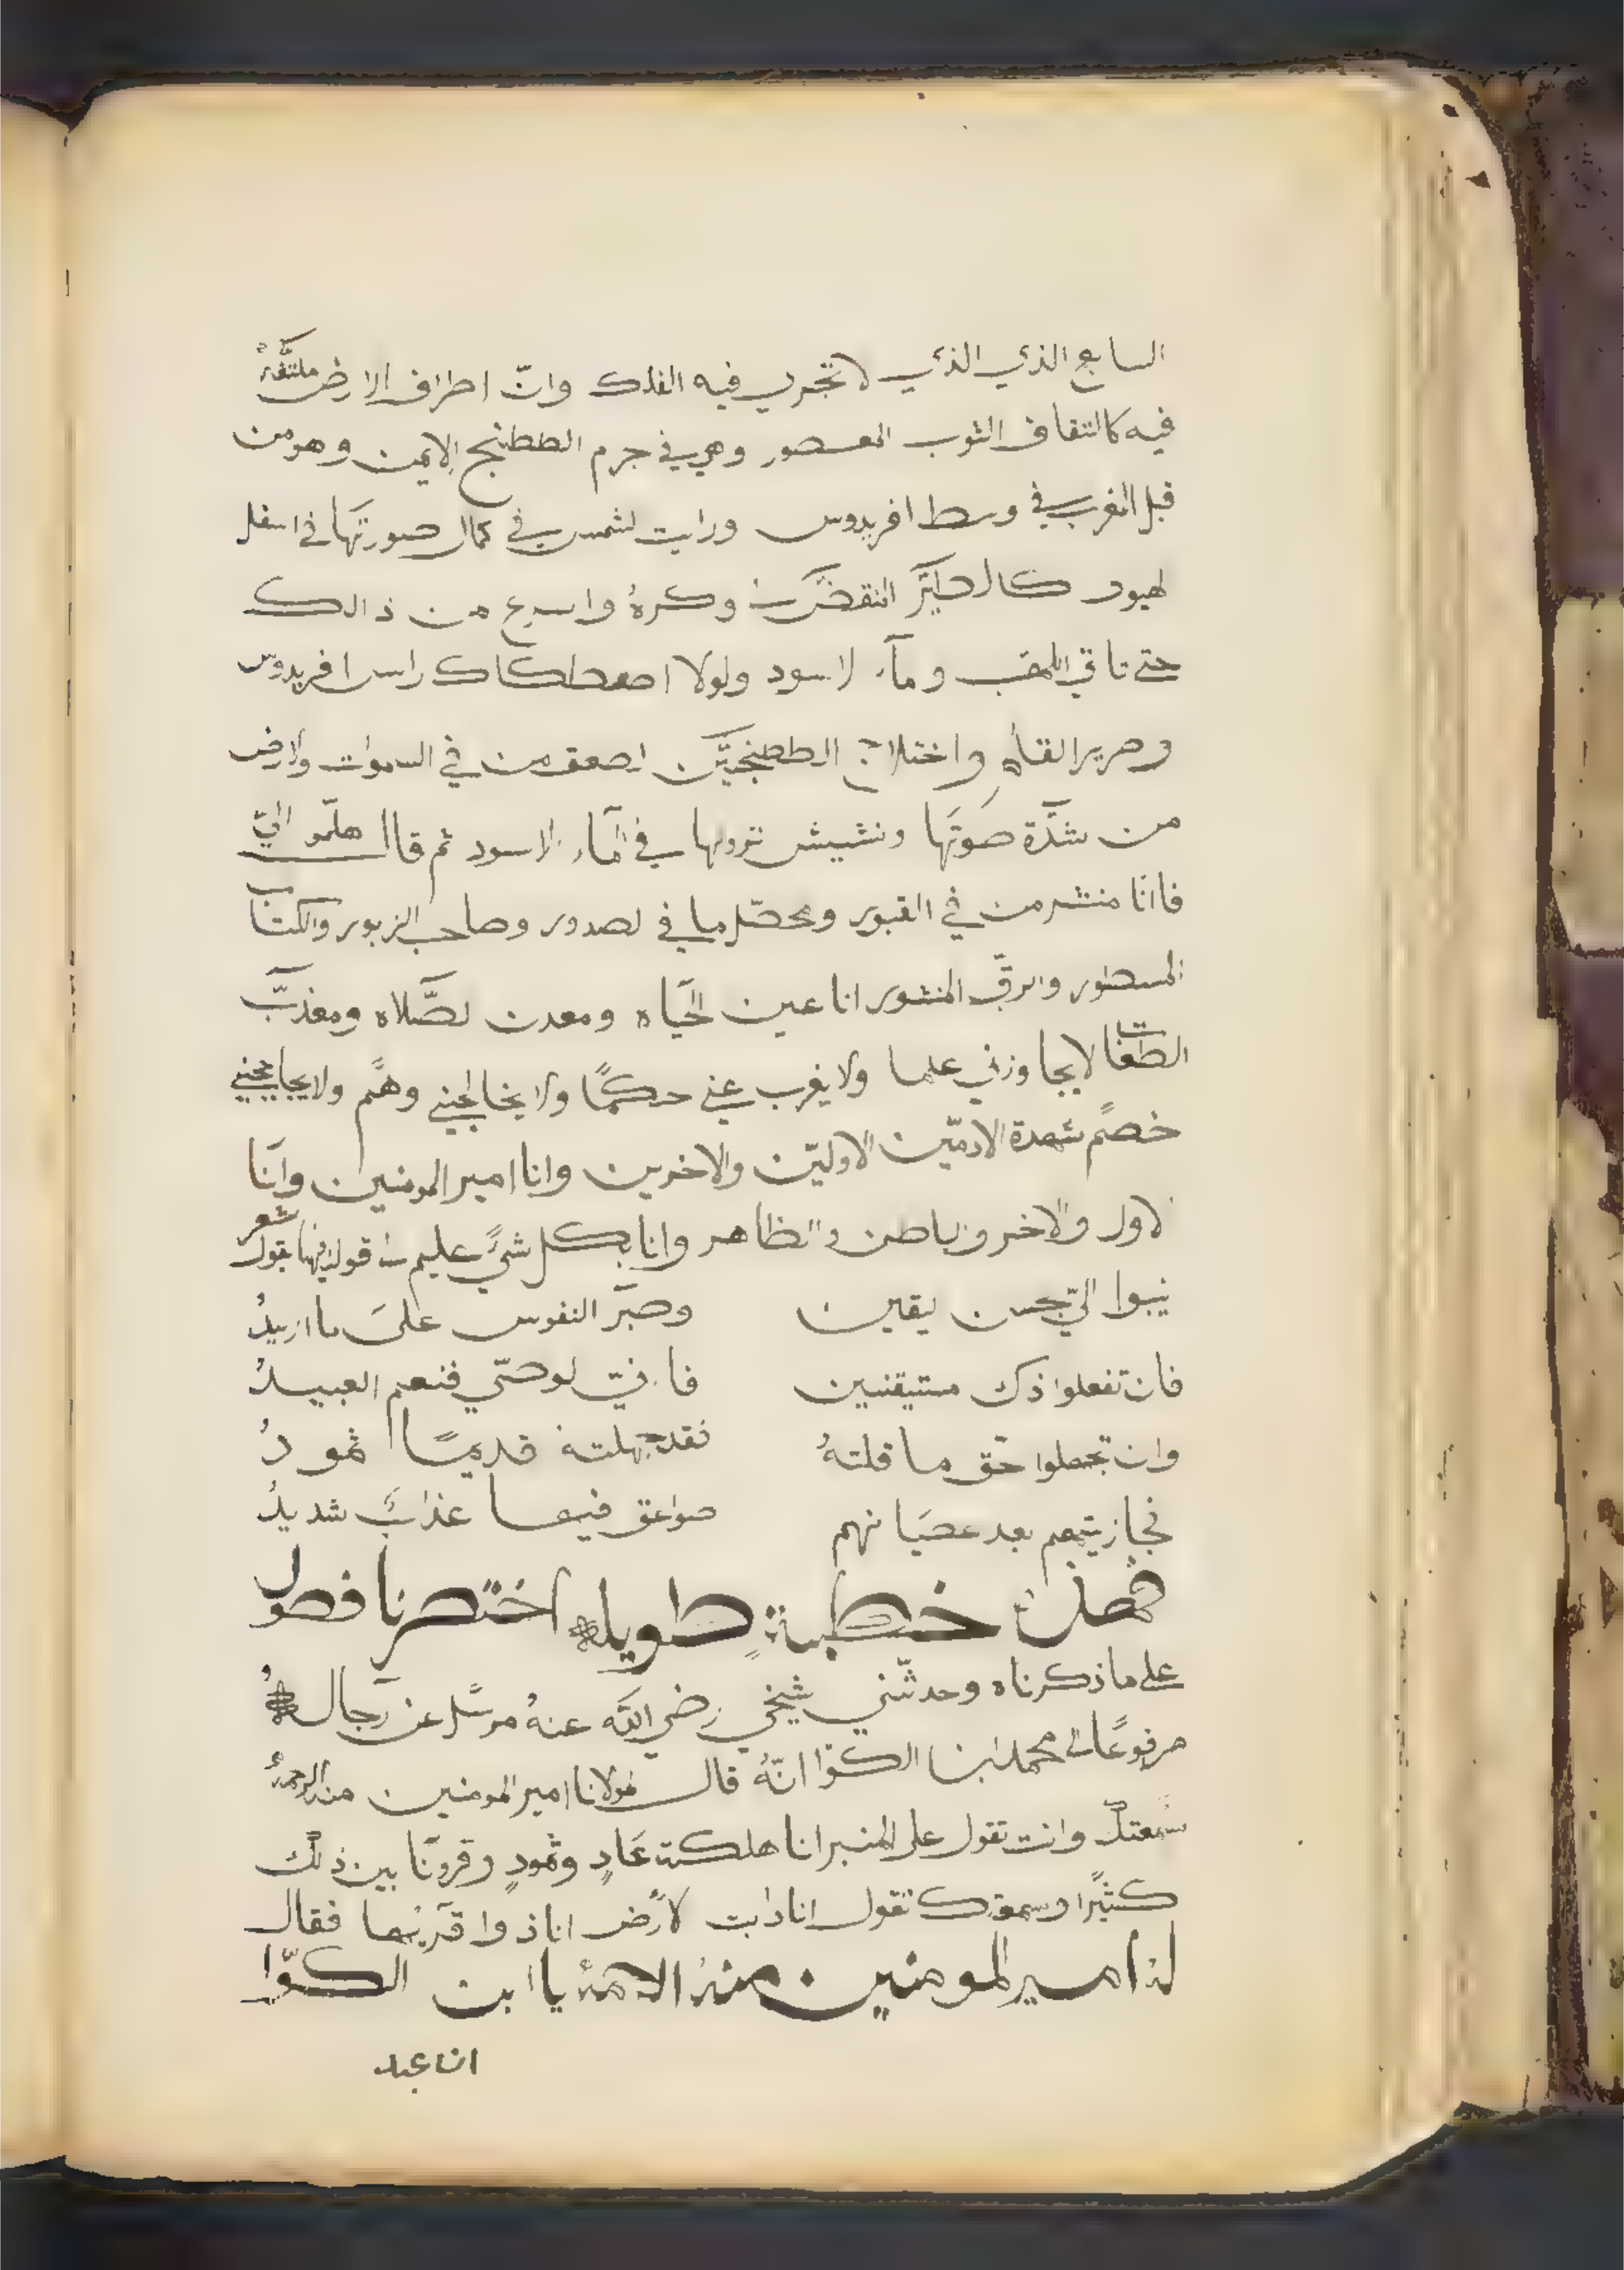 السابع الذي الذي لا تجري فيه الفلك وانّ اطراف الارض ملتفّة
فيه كالتفاف الثوب المعصور وهي في جرم الططنج الايمن وهو من
قبل المغرب في وسط افريدوس ورايت لشمس في كمال صورتها في اسفل
كالطير وكرهُ واسرع من ذالك
حتى تاتي ومآء لاسود ولولا اصطكاك راس افريدوس
وصرير واختلاج الططنجيّن اصعق من في السموات ولارض
من شدّة صوتها ونشيش نزولها في المآء الاسود ثم قال هلمّو اليّ
فاانا منشر من في القبور ومحصّل ما في لصدور وصاحب الزبور والكتاب
المسطور والرقّ المنشور انا عين الحياه ومعدن لصّلاه ومعذبّ
الطغات لا يجاوزني علما ولا يغرب عني حكمًا ولا يخالجني وهمٌ ولا
خصمٌ شهدة الادميّن الاوليّن والاخرين وانا امير المومنين وانا
لاول والاخر والباطن والظاهر وانا بكل شيًّ عليم قوله فيها يقول شعر
نيبوا اليّ بحسن ليقين وصبر النفوس على ما اريدُ
فان تفعلوا ذك مستيقنين فا نتم لوحتي فنعم العبيدُ
وان تجهلوا حق ما قلتهُ فقد جهلته قديمًا ثمودُ
فجازيتهم بعد عصيانهم صواعق فيها عذابٌ شديدُ
فهذه خطبة طويله اختصرنا فصول
على ما ذكرناه وحدثّني شيخي رضي الله عنهُ مرسل عن رجال
مرفوعًا الى محمد ابن الكوّا انّهُ قال لمولانا امير المومنين منه الرحمة
سمعتك وانت تقول على المنبر انا هلكت عادٍ وثمودٍ وقرونًا بين ذلك
كثيرًا وسمعتك تقول انا دابت لارض انا ذوا قرنيها فقال
له امير المومنين منه الرحمة يا ابن الكوّا
انا عبد